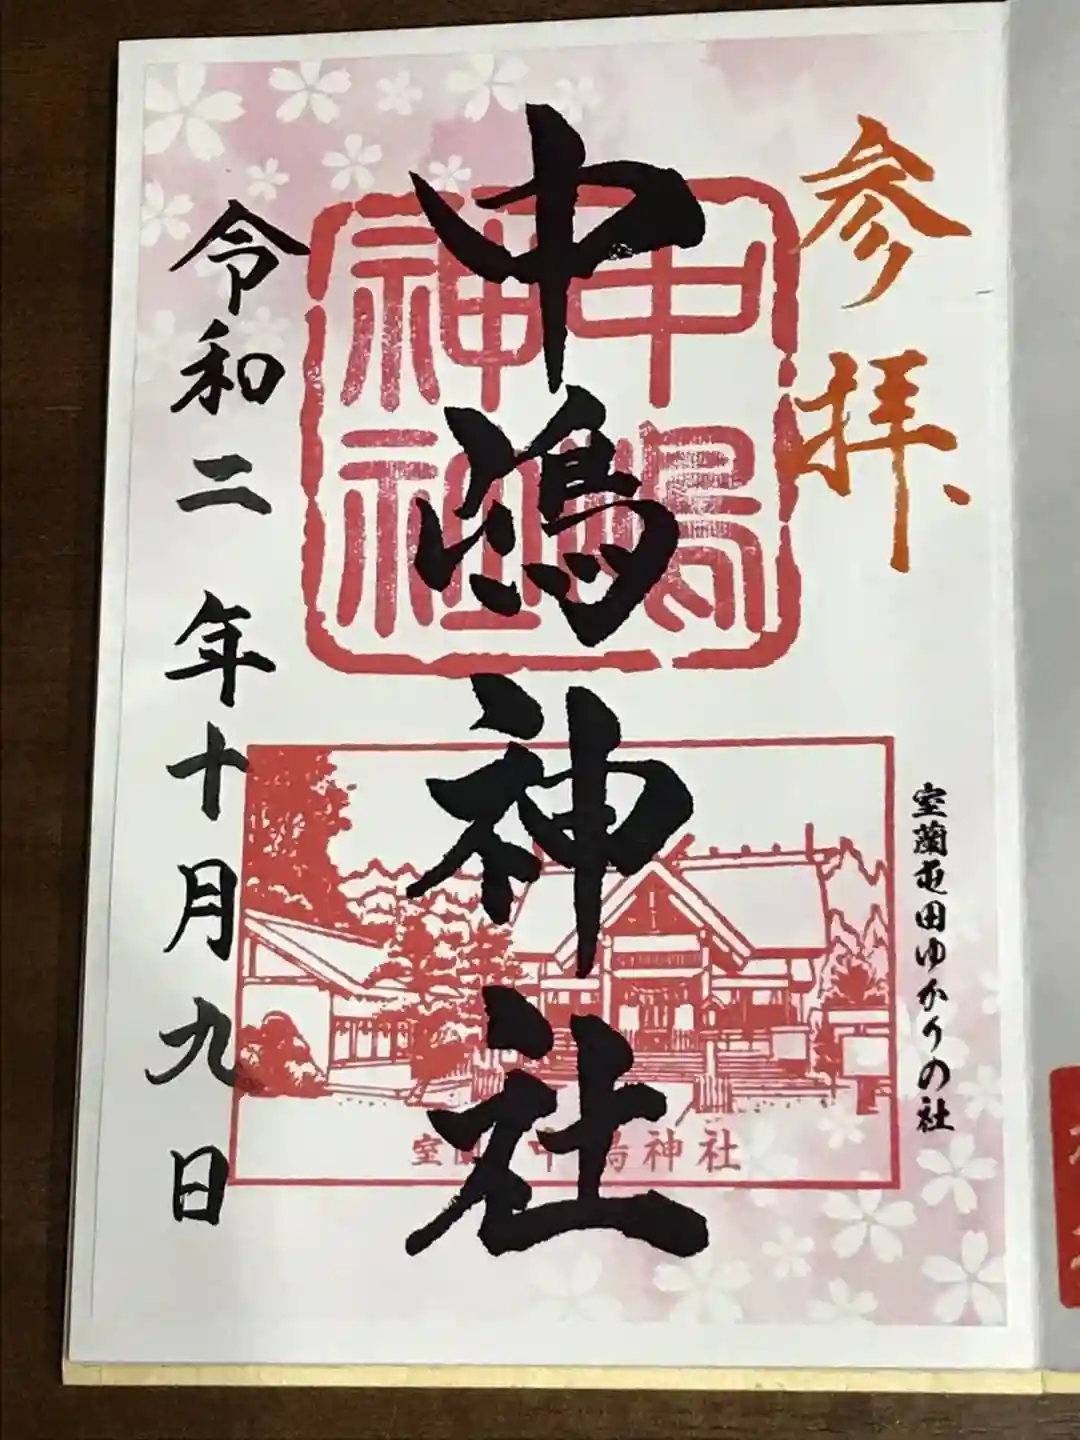 参拝
室蘭屯田ゆかりの社
中嶋神社
中嶋神社
室蘭 中嶋神社
令和二年十月九日